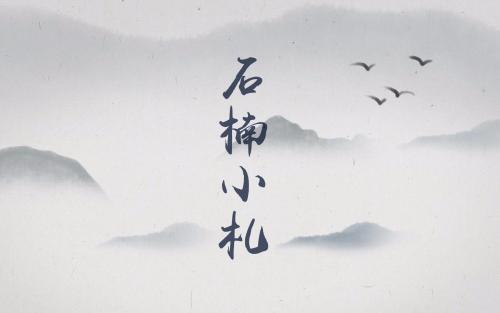 石楠小札